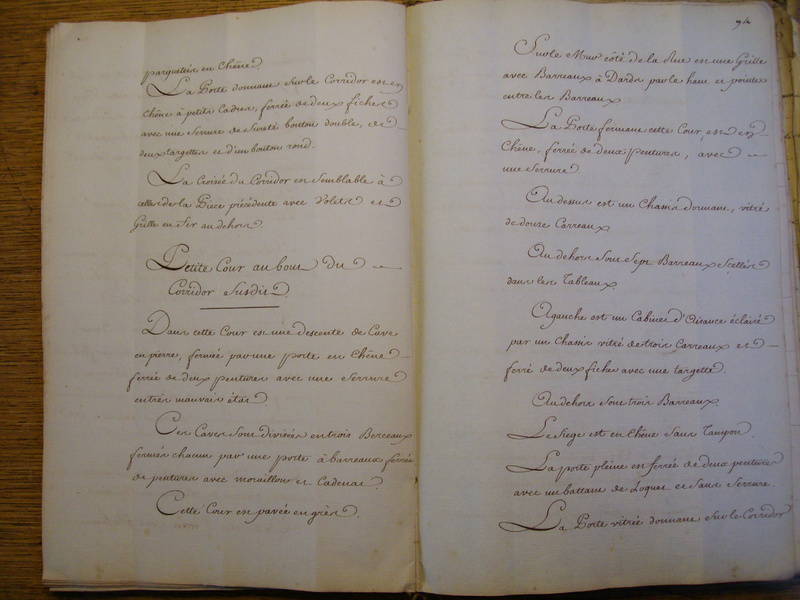 parquetés en Chêne
La Porte donnant sur le Corridor est en
chêne à petits Cadres, ferrée de deux fiches
avec une Serrure de Sureté bouton double, de
deux targettes et d'un bouton rond.
La croisée du Corridor est semblable à
celles de la Piece précédente avec Volets et
Grille en fer au dehors
Petite Cour au bout du
Corridor Susdit
Dans cette Cour est une descente de Cave
en pierre, fermée par une porte en Chêne
ferrée de deux pentures avec une Serrure
en très mauvais état
Ces Caves sont divisées en trois Berceaux
fermés chacun par une porte à barreaux ferrée
de pentures avec moraillon et Cadenat
Cette Cour est pavée en grès.
94
Sur le Mur côté de la Rue est une Grille
avec Barreaux à Dards par le haut et pointes
entre les Barreaux
La Porte fermant cette Cour, est en
Chêne, ferrée de deux pentures, avec
une Serrure.
Au dessus est un Chassis dormant, vitré
de douze Carreaux
Au dehors sont Sept Barreaux Scellés
dans les Tableaux
A gauche est un Cabinet d'Aisance éclairé
par un Chassis vitré de trois Carreaux et
ferré de deux fiches avec une targette.
Au dehors sont trois Barreaux
Le Siege est en Chêne sans Tampon.
La porte pleine est ferrée de deux pentures
avec un battant de Loquet et sans Serrure.
La Porte vitrée donnant sur le Corridor